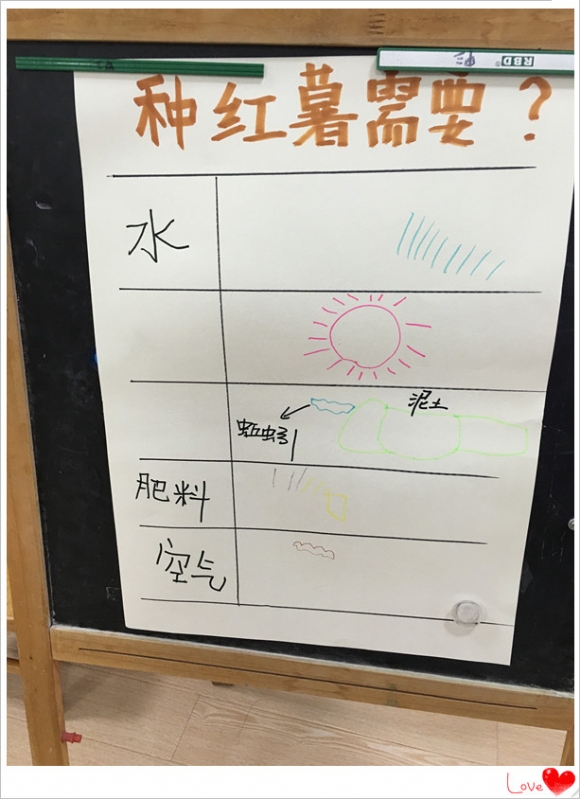 RBD
种红薯需要？
水
泥土
蚯蚓
肥料
空气
Love